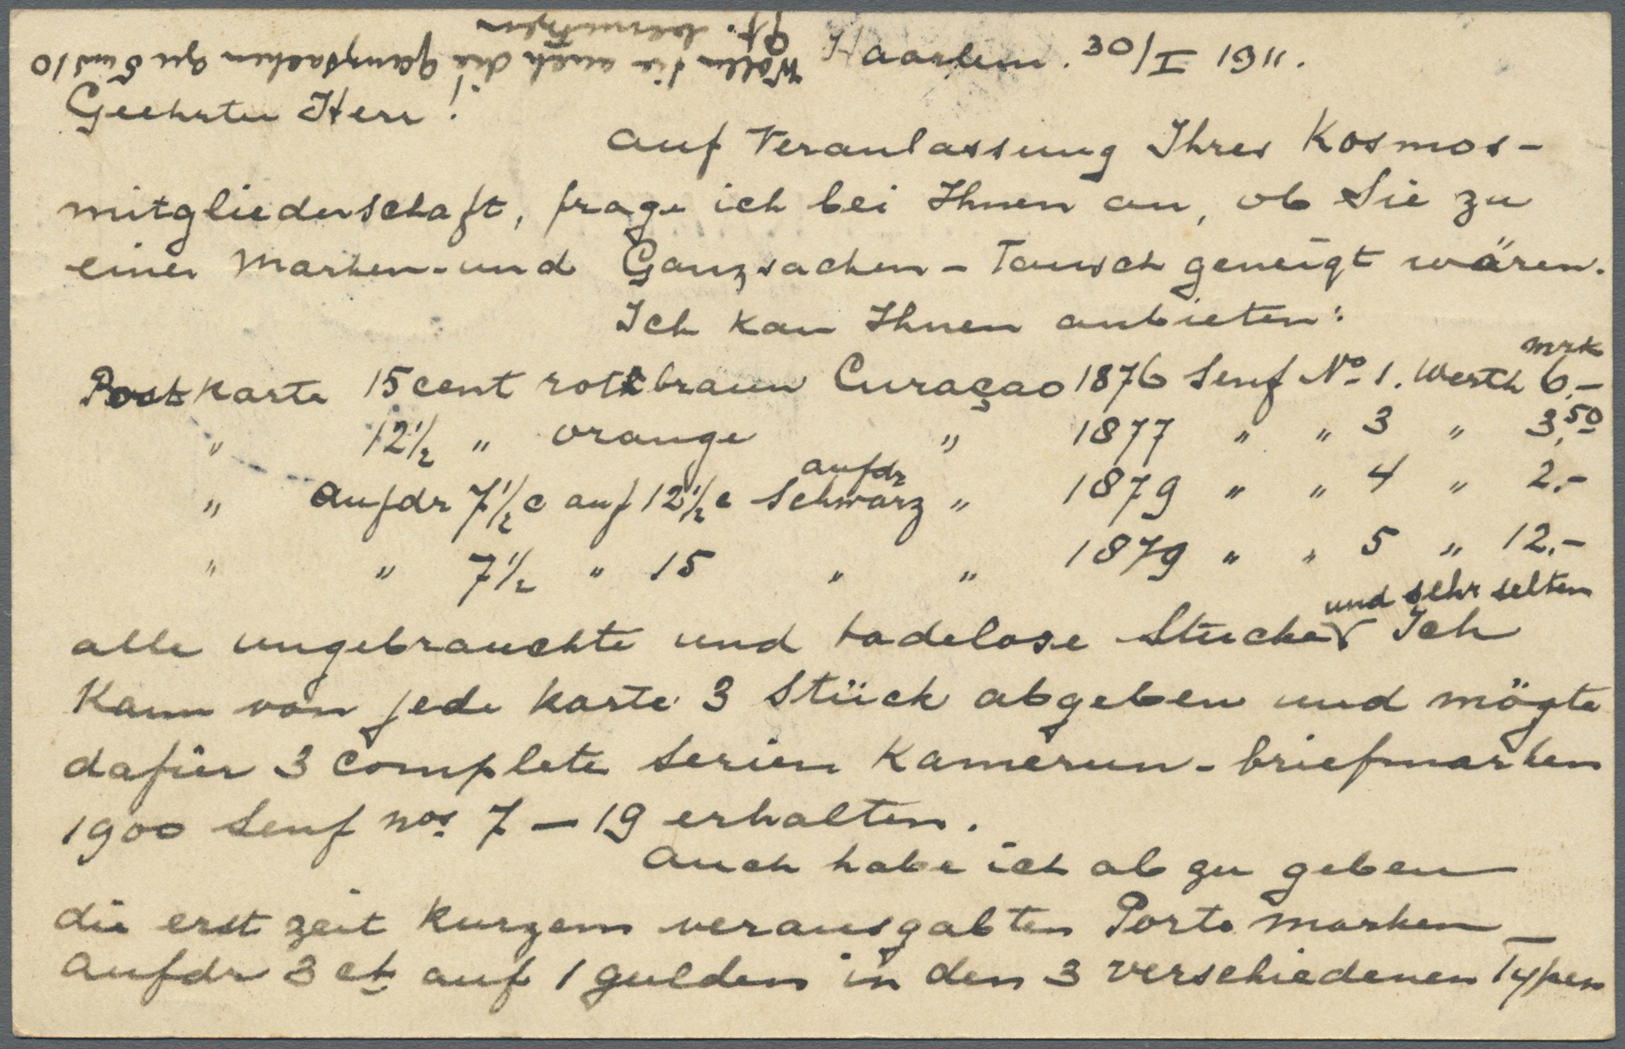 Haarlem. 30/I 1911.
Wollen Sie auch die Ganzsachen zu 5 und 10
Pf. benutzen
Geehrter Herr!
Auf Veranlassung Ihres Kosmos-
mitgliederschaft, frage ich bei Ihnen an, ob Sie zu
einer Marken- und Ganzsachen-Tausch geneigt wären.
Ich kan Ihnen anbieten:
mrk
Postkarte 15 cent rotbraun Curaçao 1876 Senf No 1. Werth 6.-
" 12½ " orange " 1877 " " 3 " 3,50
aufdr
" Aufdr 7½ c auf 12½ c Schwarz " 1879 " " 4 " 2.-
" " 7½ " 15 " " 1879 " " 5 " 12.-
und sehr selten
alle ungebrauchte und tadelose Stücke Ich
Kann von jede karte 3 Stück abgeben und mögte
dafür 3 complete Serien Kamerun-briefmarken
1900 Senf nos 7 - 19 erhalten.
Auch habe ich ab zu geben
die erst zeit kurzem verausgabten Porto marken
Aufdr 3 ct auf 1 gulden in den 3 verschiedenen Typen